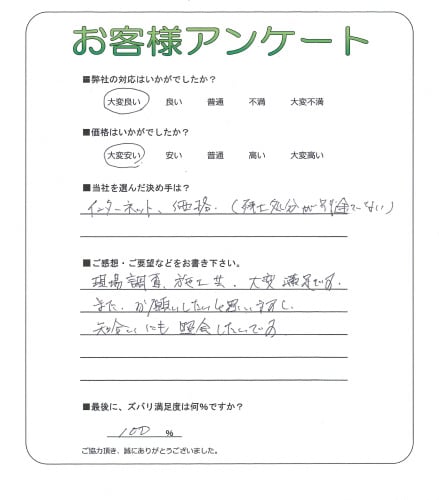 お客様アンケート
■弊社の対応はいかがでしたか？
大変良い 良い 普通 不満 大変不満
■価格はいかがでしたか？
大変安い 安い 普通 高い 大変高い
■当社を選んだ決め手は？
インターネット、価格.（残土処分が別途でない）
■ご感想・ご要望などをお書き下さい。
現場調査、施工共、大変満足です.
また、お願いしたいと思いますし、
知合いにも照会したいです
■最後に、ズバリ満足度は何％ですか？
100 ％
ご協力頂き、誠にありがとうございました。